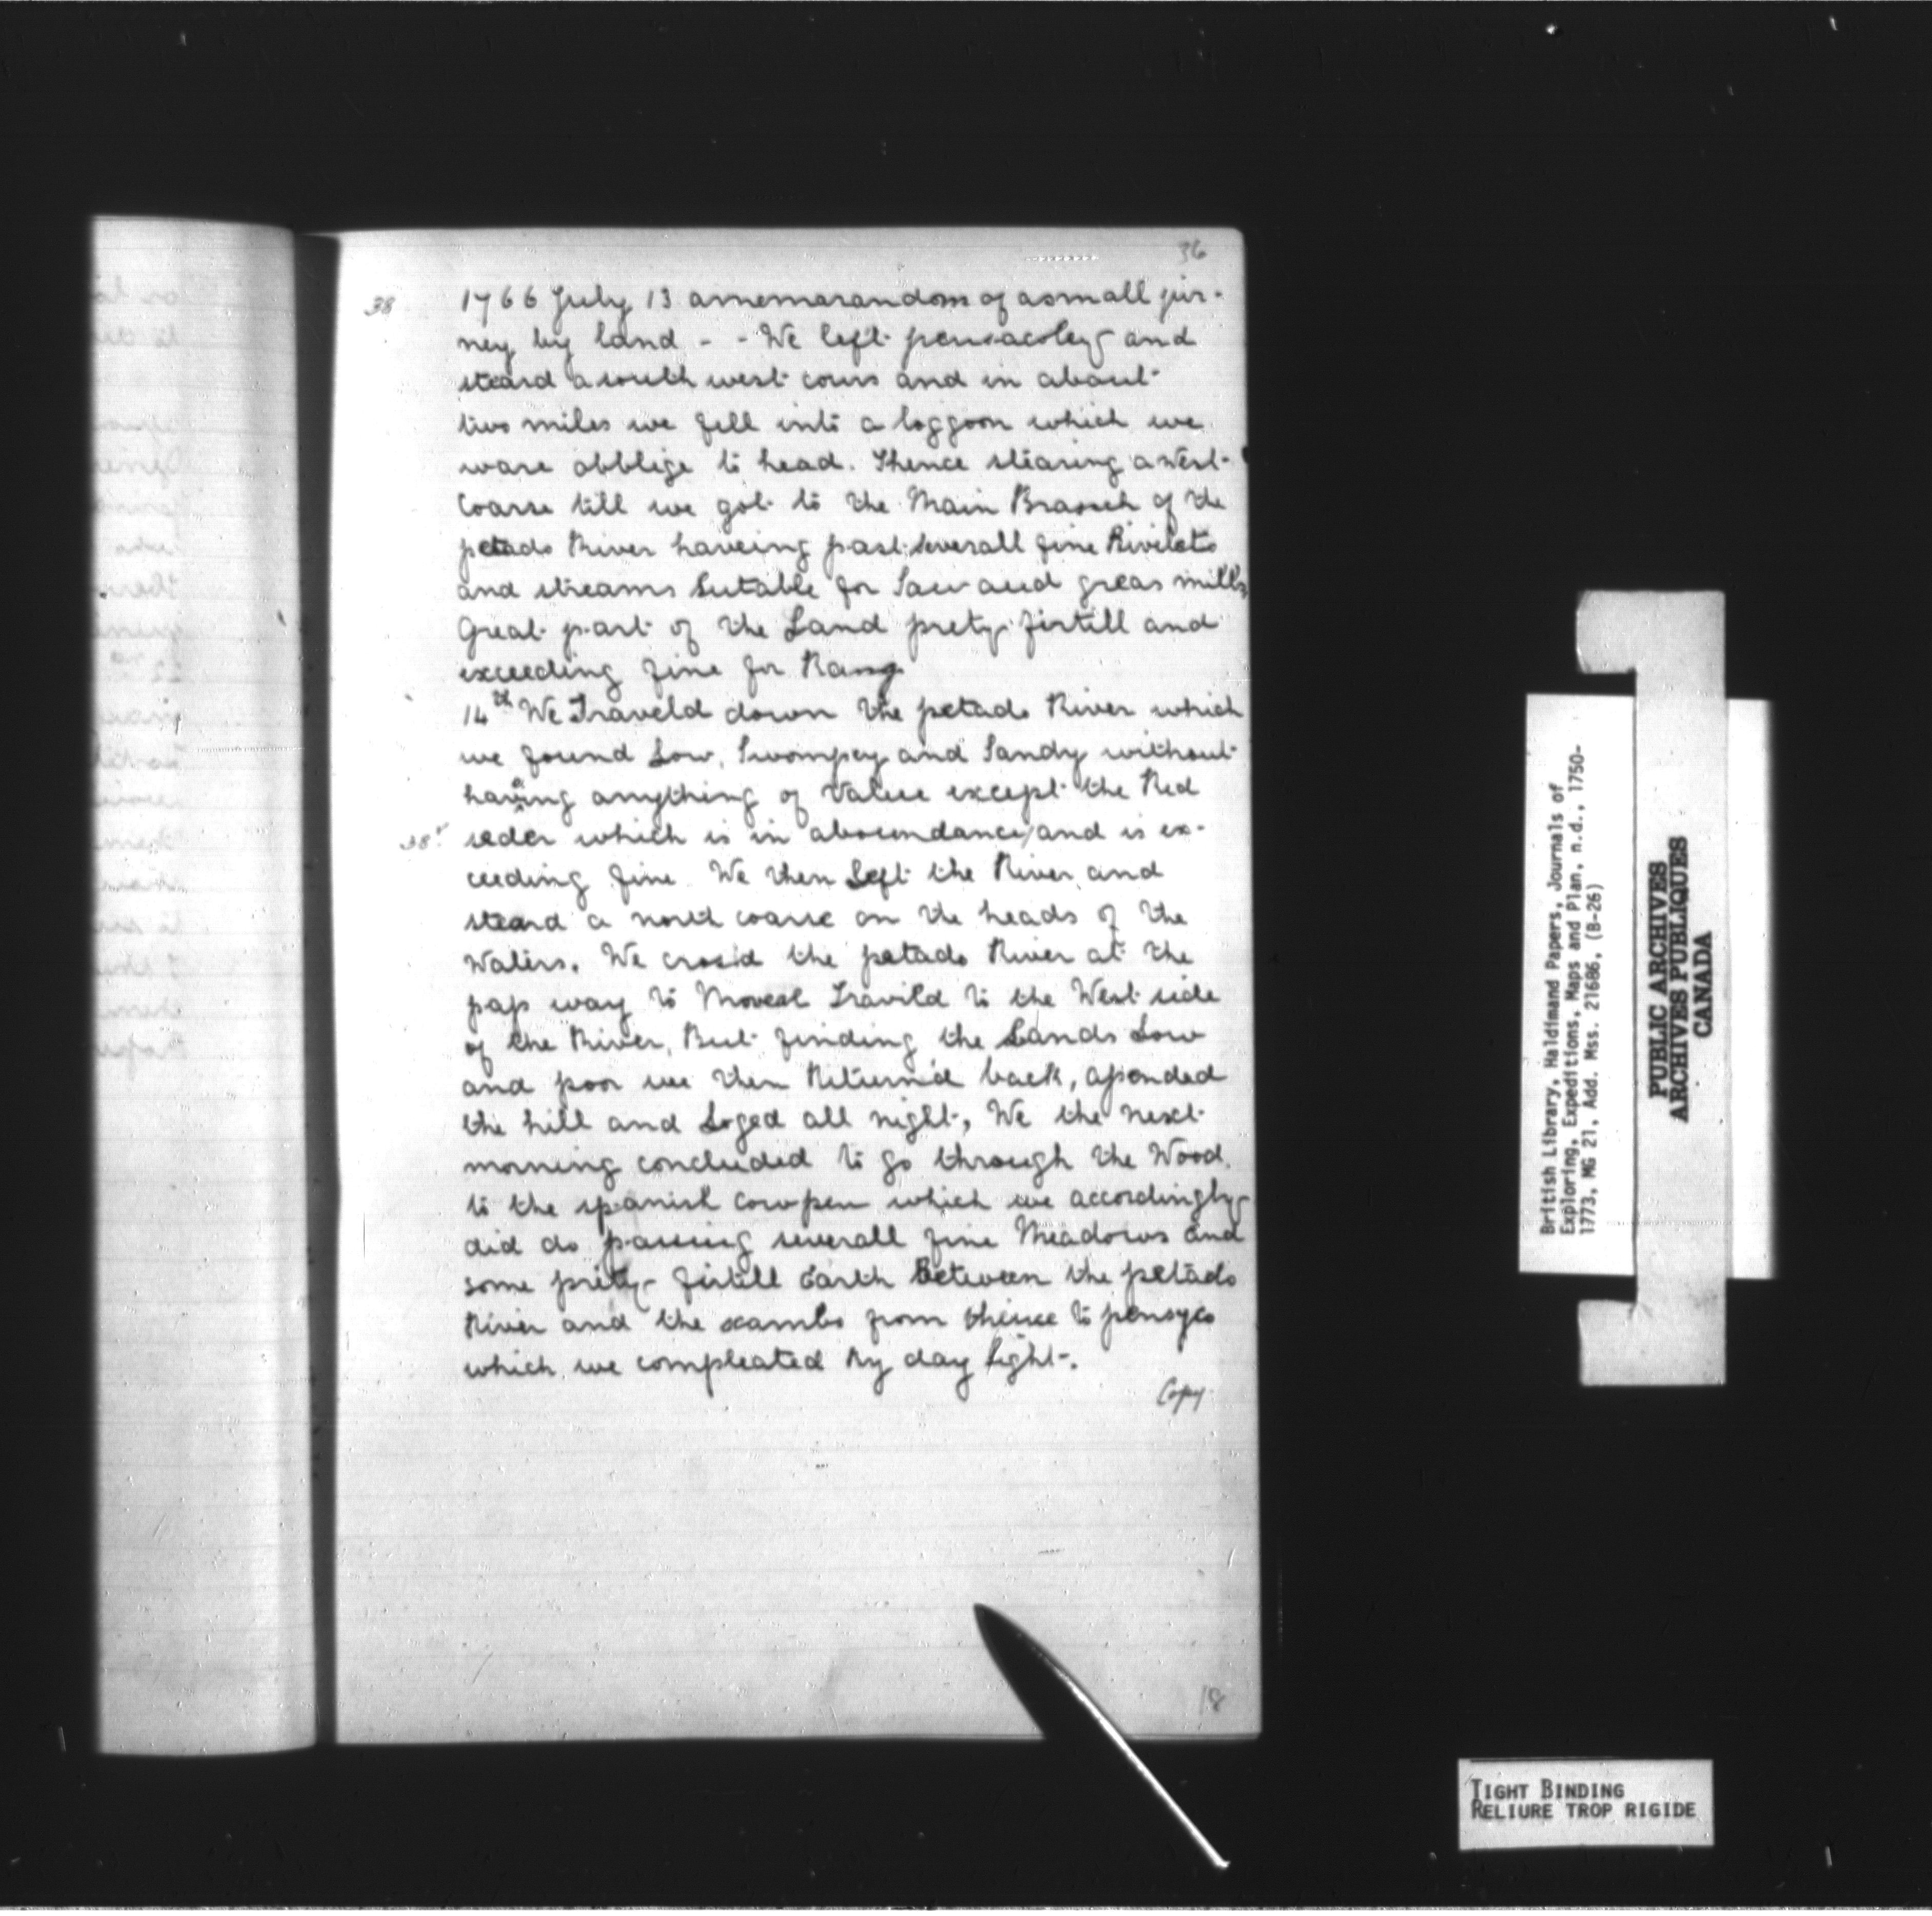 36
38 1766 July 13 amemarandom of asmall jur-
ney by land - - We left pensacoley and
steard a south west cours and in about
two miles we fell into a loggoon which we
ware obblige to head. Thence stearing a West
Coarse till we got to the Main Branch of the
petado River haveing past severall fine Rivilets
and streams Sutable for Saw and greas mills
Great part of the Land prety firtill and
exceeding fine for Rang
14th We Traveld down the petado River which
we found Low, Swompey and Sandy without
having anything of Value except the Red
38v seder which is in aboundance, and is ex-
ceeding fine We then Left the River and
steard a north coarse on the heads of the
Waters. We cross'd the petado River at the
pass way to Moveal Travild to the West side
of the River, But finding the Lands Low
and poor we then Return'd back, assended
the hill and Loged all night, We the next
morning concluded to go through the Wood
to the spanish cowpen which we accordingly
did do passing severall fine Meadows and
some prity firtill Earth Between the petado
River and the scambo from thince to pensyco
which we compleated by day light.
Copy
18
British Library, Haldimand Papers, Journals of
Exploring, Expeditions, Maps and Plan, n.d., 1750-
1773, MG 21, Add. Mss. 21686, (B-26)
PUBLIC ARCHIVES
ARCHIVES PUBLIQUES
CANADA
TIGHT BINDING
RELIURE TROP RIGIDE